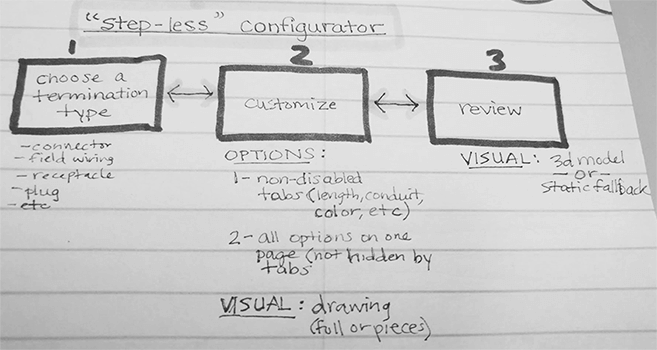 "step-less" configurator
1
choose a
termination
type
- connector
- field wiring
- receptacle
- plug
- etc
2
customize
OPTIONS:
1- non-disabled
tabs (length, conduit,
color, etc)
2- all options on one
page (not hidden by
tabs
VISUAL: drawing
(full or pieces)
3
review
VISUAL: 3d model
-or-
static fallback